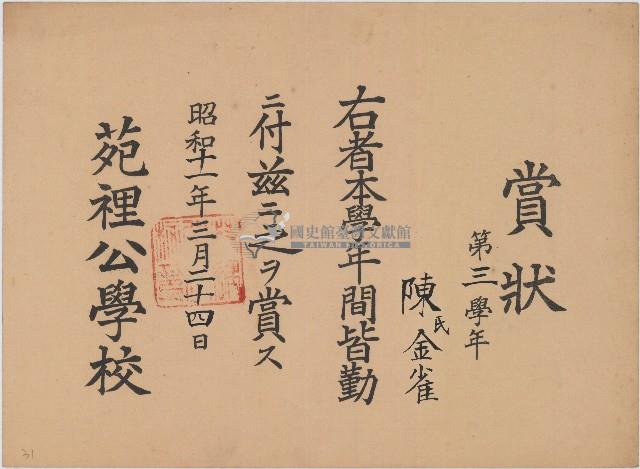 賞狀
第三學年
陳氏金雀
右者本學年間皆勤
ニ付茲ニ之ヲ賞ス
昭和十一年三月二十四日
苑裡公學校
國史館臺灣文獻館
TAIWAN HISTORICA
31